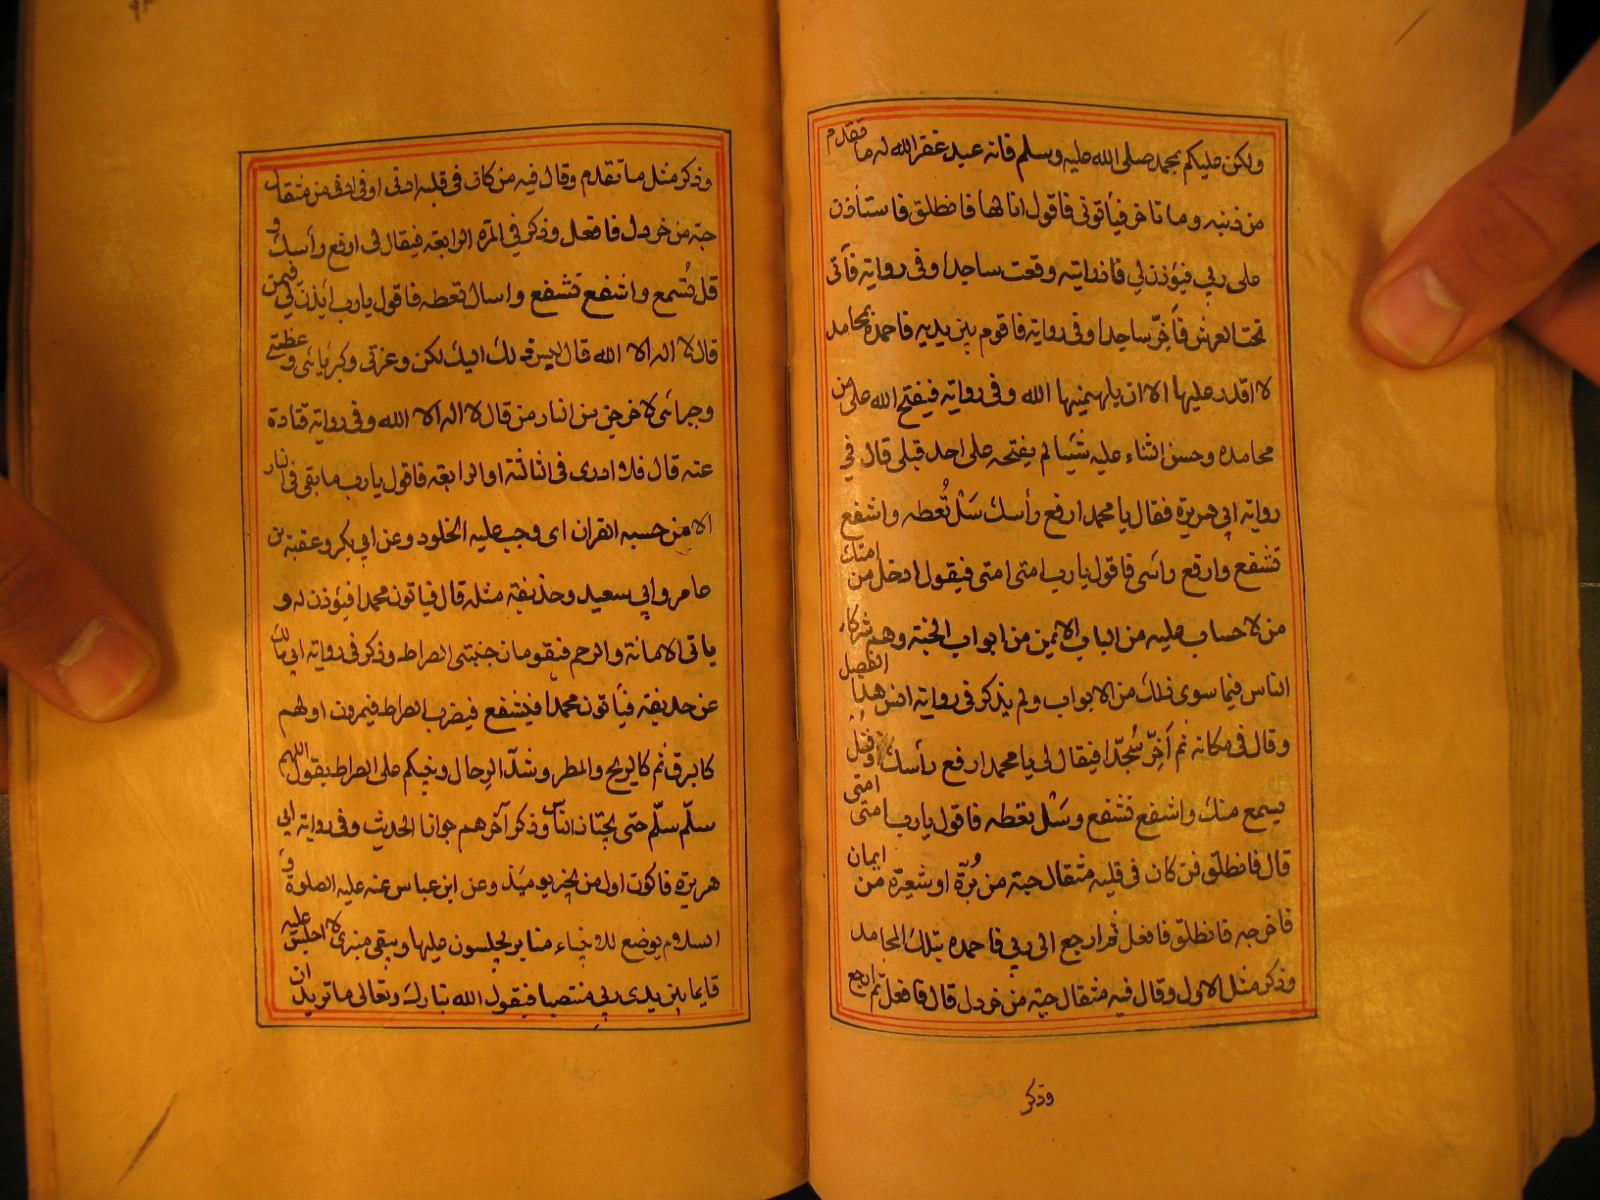 ولكن عليكم بمحمد صلى الله عليه وسلم فانه عبد غفر الله له ما تقدم
من ذنبه وما تاخر فيأتونى فاقول انا لها فانطلق فاستأذن
على ربي فيؤذن لي فاذا رايته وقعت ساجدا وفى رواية فآتى
تحت العرش فأخِرّ ساجدا وفى رواية فاقوم بين يديه فاحمده بمحامد
لا اقدر عليها الا ان يلهمنيها الله وفى رواية فيفتح الله على من
محامده وحسن الثناء عليه شيئا لم يفتحه على احد قبلى قال في
رواية ابي هريرة فقال يا محمد ارفع رأسك سَلْ تُعطه واشفع
تشفع وارفع رأسى فاقول يا رب امتى امتى فيقول ادخل من امتك
من لا حساب عليه من الباب الايمن من ابواب الجنة وهم شركاء
الناس فيما سوى ذلك من الابواب ولم يذكر فى رواية انس هذا الفصل
وقال فى مكانه ثم أَخِرّ سُجّدا فيقال لي يا محمد ارفع رأسك وقل
يسمع منك واشفع تشفع وسَلْ تعطه فاقول يا رب امتى امتى
قال فانطلق فمن كان فى قلبه مثقال حبة من بُرّة او شعيرة من ايمان
فاخرجه فانطلق فافعل ثم ارجع الى ربي فاحمده بتلك المحامد
وذكر مثل الاول وقال فيه مثقال حبة من خردل قال فافعل ثم ارجع
وذكر
وذكر مثل ما تقدم وقال فيه من كان فى قلبه ادنى ادنى ادنى من مثقال
حبة من خردل فافعل وذكر في المرة الرابعة فيقال لى ارفع رأسك و
قل تُسمع واشفع تشفع واسال تعطه فاقول يا رب ائذن لي فيمن
قال لا اله الا الله قال ليس ذلك اليك لكن وعزتى وكبريائى وعظمتى
وجبرائى لاخرجن من النار من قال لا اله الا الله وفى رواية قتادة
عنه قال فلا ادرى فى الثالثة او الرابعة فاقول يا رب ما بقى فى النار
الا من حسبه القران اى وجب عليه الخلود وعن ابي بكر وعقبة بن
عامر وابي سعيد وحذيفة مثله قال فياتون محمدا فيؤذن له و
ياتى الامانة والرحم فيقومان جنبتى الصراط وذكر فى رواية ابي مالك
عن حذيفة فيأتون محمدا فيشفع فيضرب الصراط فيمرون اولهم
كالبرق ثم كالريح والمطر وشدّ الرجال ونبيكم على الصراط يقول اللهم
سلّم سلّم حتى يجتاز الناس وذكر آخرهم جوازا الحديث وفى رواية ابي
هريرة فاكون اول من يجيز يومئذ وعن ابن عباس عنه عليه الصلوة و
السلام يوضع للانبياء منابر يجلسون عليها ويبقى منبرى لا اجلس عليه
قايما بين يدى ربي منتصبا فيقول الله تبارك وتعالى ما تريد ان